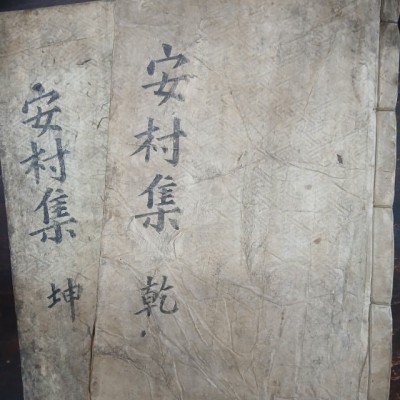 安村集 乾
安村集 坤